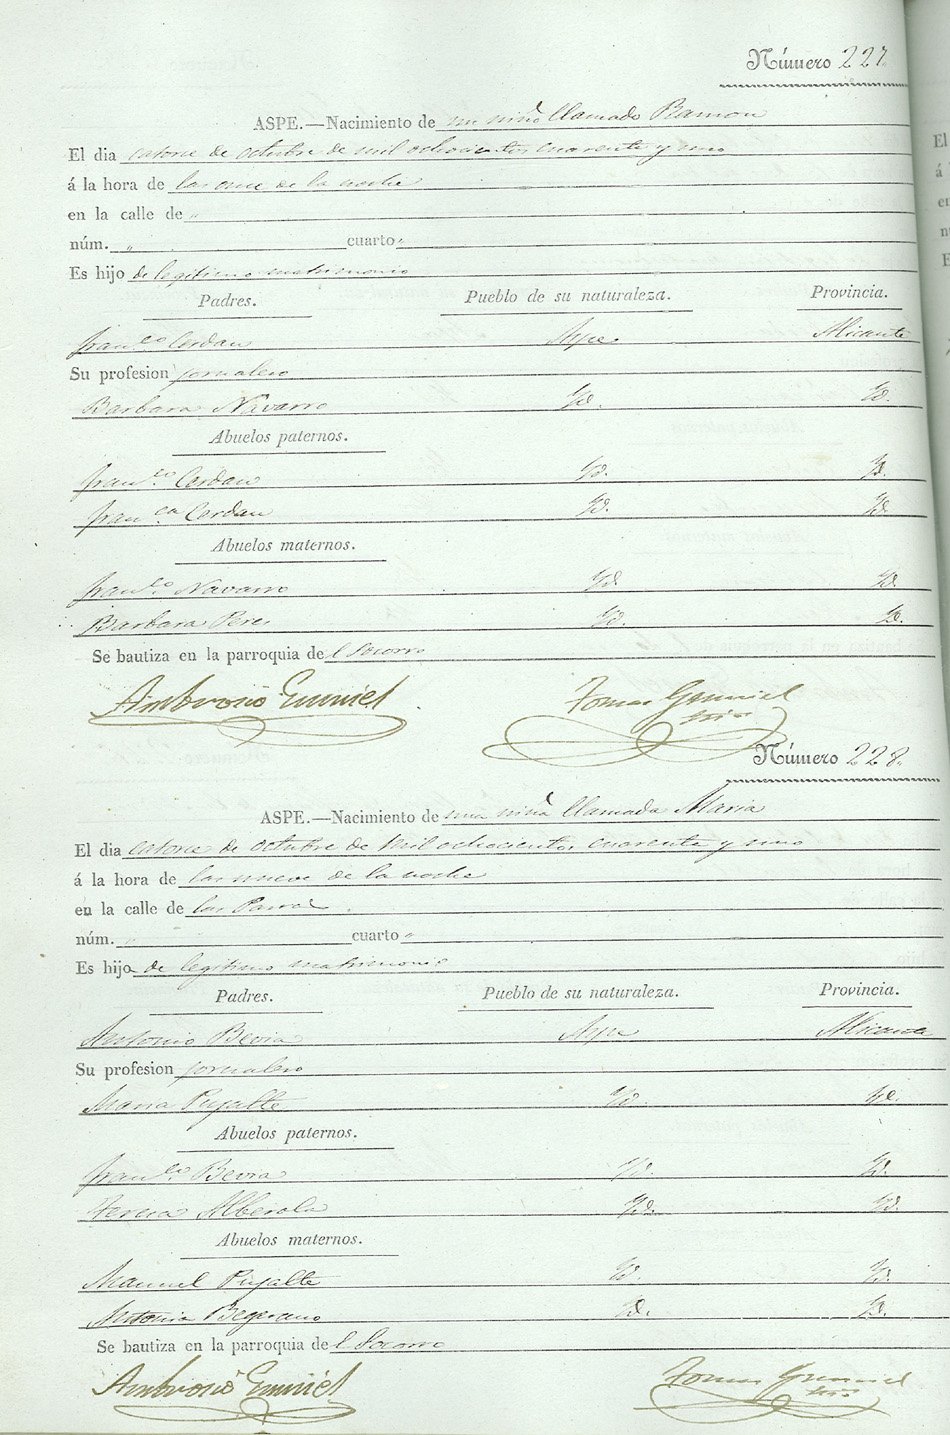 Número 227
ASPE.—Nacimiento de un niño llamado Ramon
El dia catorce de octubre de mil ochocientos cuarenta y uno
á la hora de las once de la noche
en la calle de "
núm. " cuarto "
Es hijo de legitimo matrimonio
Padres. Pueblo de su naturaleza. Provincia.
Franco Cerdan Aspe Alicante
Su profesion jornalero
Barbara Navarro Yd. Yd.
Abuelos paternos.
Franco Cerdan Yd. Yd.
Franca Cerdan Yd. Yd.
Abuelos maternos.
Franco Navarro Yd. Yd.
Barbara Peres Yd. Yd.
Se bautiza en la parroquia del Socorro
Ambrosio Tomas
Número 228.
ASPE.—Nacimiento de una niña llamada Maria
El dia catorce de octubre de mil ochocientos cuarenta y uno
á la hora de las nueve de la noche
en la calle de las Parras.
núm. " cuarto "
Es hijo de legitimo matrimonio
Padres. Pueblo de su naturaleza. Provincia.
Antonio Bevia Aspe Alicante
Su profesion jornalero
Maria Pujalte Yd. Yd.
Abuelos paternos.
Franco Bevia Yd. Yd.
Teresa Alberola Yd. Yd.
Abuelos maternos.
Manuel Pujalte Yd. Yd.
Antonia Yd. Yd.
Se bautiza en la parroquia del Socorro
Ambrosio Tomas